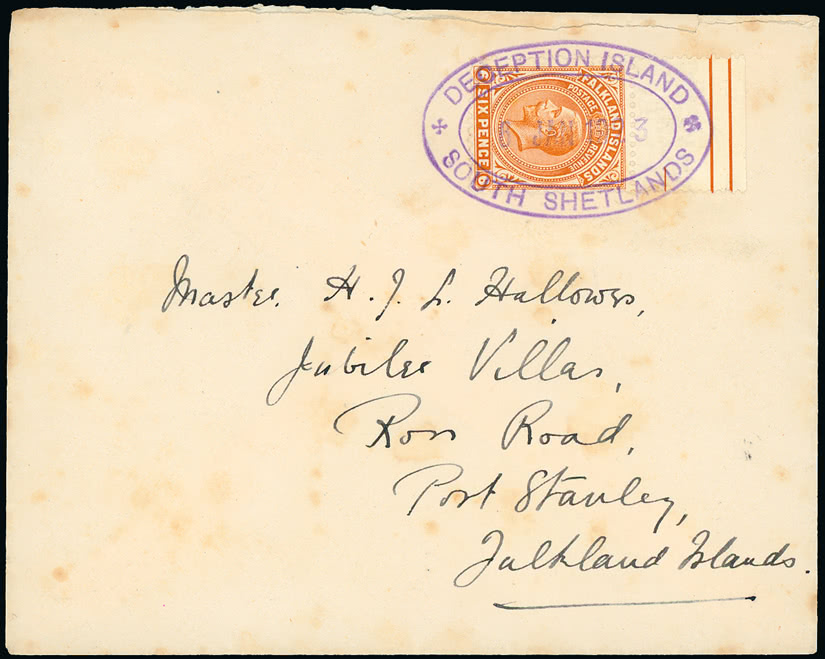 DECEPTION ISLAND
SOUTH SHETLANDS
FALKLAND ISLANDS
POSTAGE & REVENUE
SIX PENCE
3
Master. H. J. L. Hallowes,
Jubilee Villas,
Ross Road,
Port Stanley,
Falkland Islands.